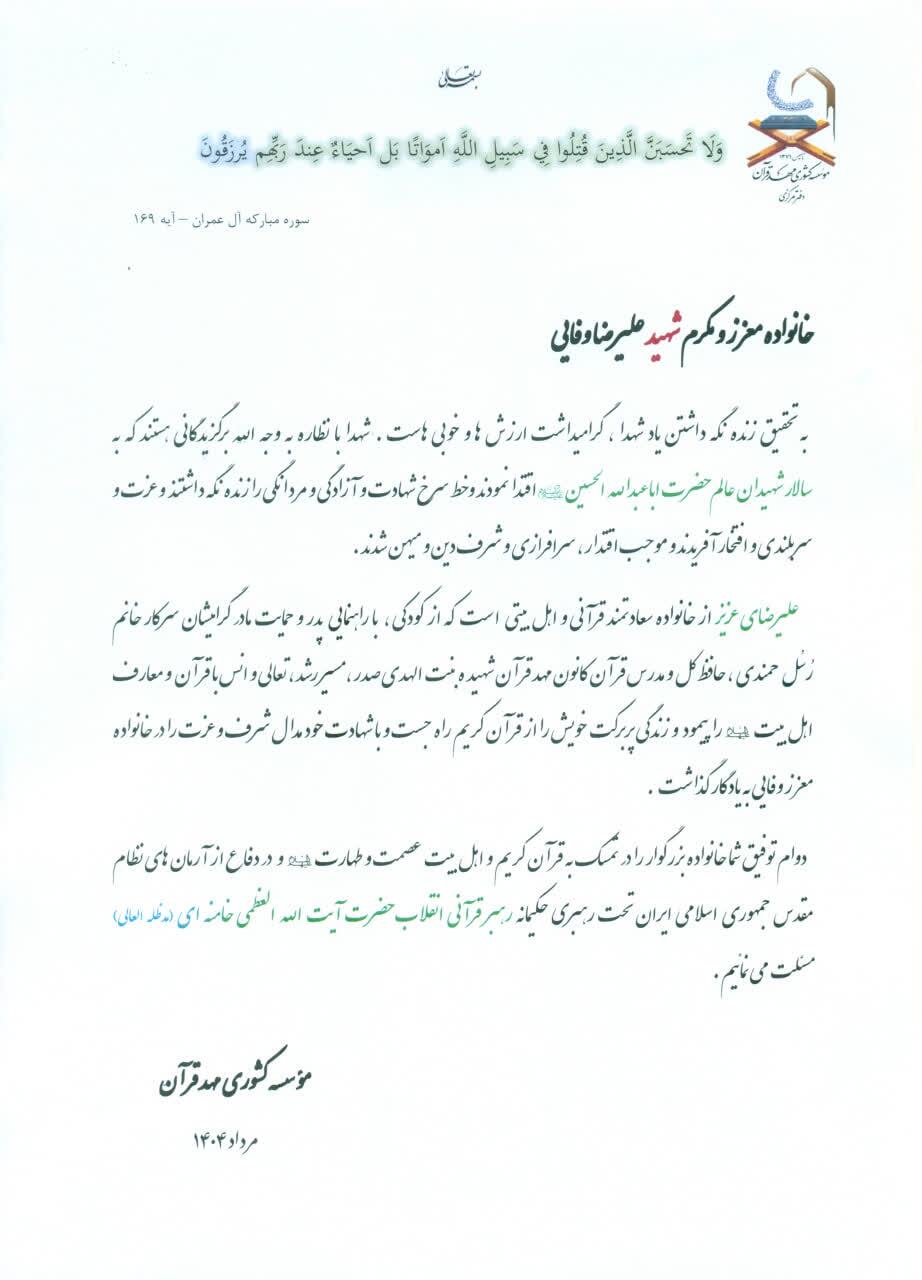 بسمه تعالی
وَلَا تَحسَبَنَّ الَّذِینَ قُتِلُوا فِي سَبِیلِ اللَّهِ اَموَاتًا بَل اَحیَاءٌ عِندَ رَبِّهِم یُرزَقُونَ
تاسیس ۱۳۷۱
موسسه کشوری مهد قرآن
دفتر مرکزی
سوره مبارکه آل عمران – آیه ۱۶۹
خانواده معزز و مکرم شهید علیرضا وفایی
به تحقیق زنده نگه داشتن یاد شهدا ، گرامیداشت ارزش ها و خوبی هاست . شهدا با نظاره به وجه الله برگزیدگانی هستند که به
سالار شهیدان عالم حضرت اباعبدالله الحسین اقتدا نمودند و خط سرخ شهادت و آزادگی و مردانگی را زنده نگه داشتند و عزت و
سربلندی و افتخار آفریدند و موجب اقتدار ، سرافرازی و شرف دین و میهن شدند .
علیرضای عزیز از خانواده سعادتمند قرآنی و اهل بیتی است که از کودکی ، با راهنمایی پدر و حمایت مادر گرامیشان سرکار خانم
رُسُل حمندی ، حافظ کل و مدرس قرآن کانون مهد قرآن شهیده بنت الهدی صدر ، مسیر رشد ، تعالی و انس با قرآن و معارف
اهل بیت را پیمود و زندگی پربرکت خویش را از قرآن کریم راه جست و با شهادت خود مدال شرف و عزت را در خانواده
معزز وفایی به یادگار گذاشت .
دوام توفیق شما خانواده بزرگوار را در تمسّک به قرآن کریم و اهل بیت عصمت و طهارت و در دفاع از آرمان های نظام
مقدس جمهوری اسلامی ایران تحت رهبری حکیمانه رهبر قرآنی انقلاب حضرت آیت الله العظمی خامنه ای (مدظله العالی)
مسئلت می نمائیم .
مؤسسه کشوری مهد قرآن
مرداد ۱۴۰۴